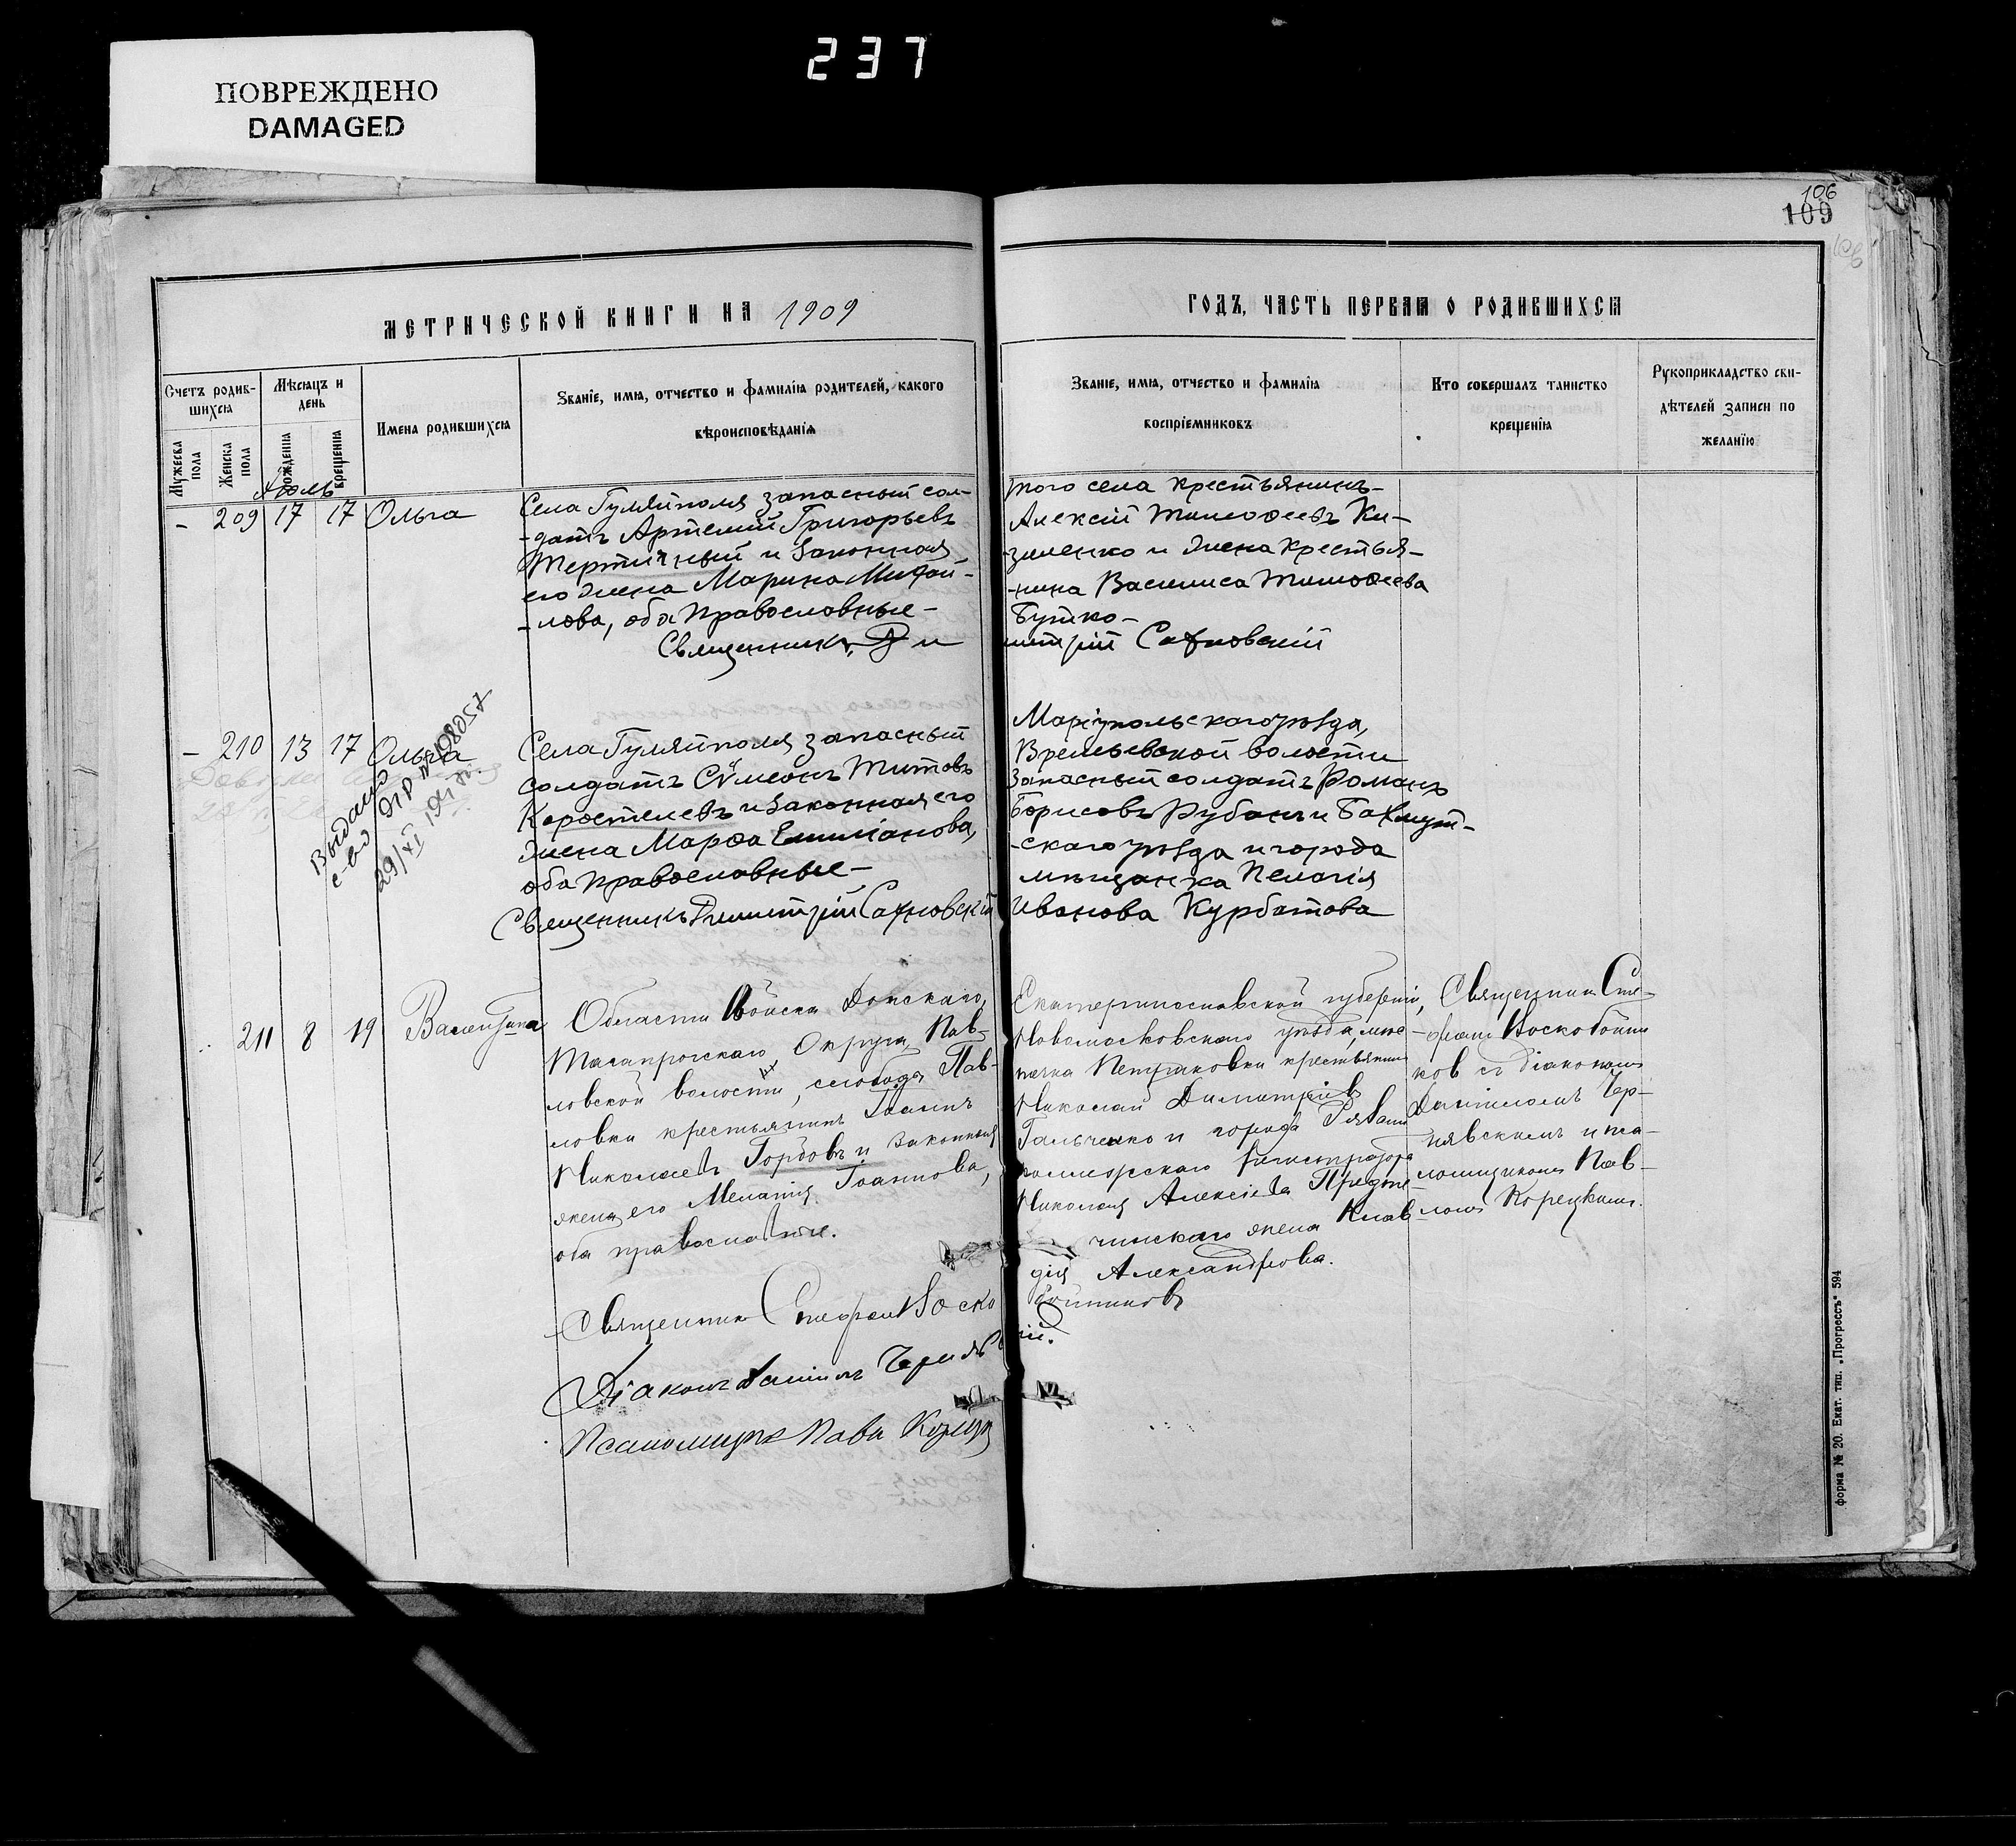 237
ПОВРЕЖДЕНО
DAMAGED
106
109
106
МЕТРИЧЕСКОЙ КНИГИ НА 1909
ГОДЪ, ЧАСТЬ ПЕРВАЯ О РОДИВШИХСЯ
Счетъ родив-
шихся
Мужеска пола
Женска пола
Мѣсяцъ и
день
рожденія
крещенія
Имена родившихся
Званіе, имя, отчество и фамилія родителей, какого
вѣроисповѣданія
Званіе, имя, отчество и фамилія
воспріемниковъ
Кто совершалъ таинство
крещенія
Рукоприкладство сви-
дѣтелей записи по
желанію
- 209 17 17 Ольга
Села Гуляйполя запасный сол-
-датъ Артемій Григорьевъ
и законная
его жена Марина Михай-
-лова, оба православные-
Священникъ Ди
того села крестьянинъ-
Алексій Тимоѳеевъ Ки-
-зименко и жена крестья-
-нина Василиса Тимоѳеева
Бутко-
митрій Сахновскій
- 210 13 17 Ольга
Выдано
с-во
29/XI
Села Гуляйполя запасный
солдатъ Сѵмеонъ Титовъ
Коростелевъ и законная его
жена Марѳа Емиліанова,
оба православные-
Священникъ Димитрій Сахновскій
Маріупольскаго уѣзда,
Времьевской волости
запасный солдатъ Романъ
Борисовъ Рубанъ и Бахмут-
-скаго уѣзда и города
мѣщанка Пелагія
Иванова Курбатова
211 8 19 Валентина
Области Войска Донскаго,
Таганрогскаго Округа, Пав-
ловской волости, слобода Пав-
ловки крестьянинъ Іоаннъ
Николаевъ Гордовъ и законная
жена его Меланія Іоаннова,
оба православные.
Екатеринославской губерніи,
Новомосковскаго уѣзда, мѣс
течка Петриковки крестьянинъ
Николай Димитріевъ
Гальченко и города
коллежскаго регистратора
Николая Алексіева
жена Клав-
дія Александрова.
Священникъ Сте-
-фанъ Воскобойни
ковъ съ діакономъ
Даніиломъ Чер-
нявскимъ и пса-
ломщикомъ Пав-
ломъ Корецкимъ.
Священникъ Стефанъ Воско
бойниковъ
Діаконъ Даніилъ Чернявс
кій.
Псаломщикъ Павл
форма № 20. Екат. тип. „Прогрессъ" 594